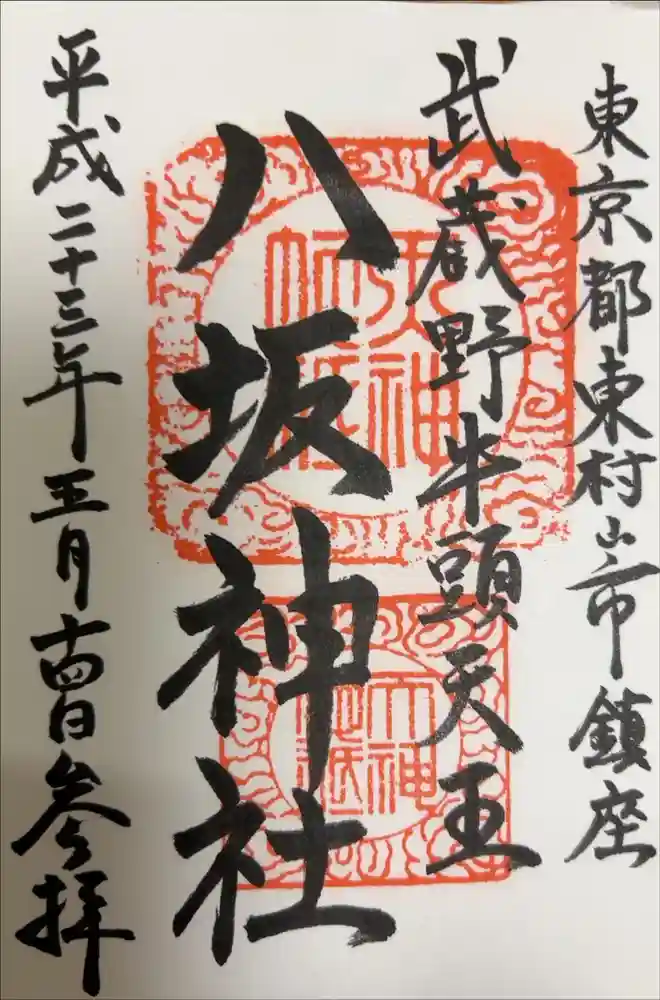 東京都東村山市鎮座
武蔵野牛頭天王
八坂神社
平成二十三年五月十四日参拝
天神地祇